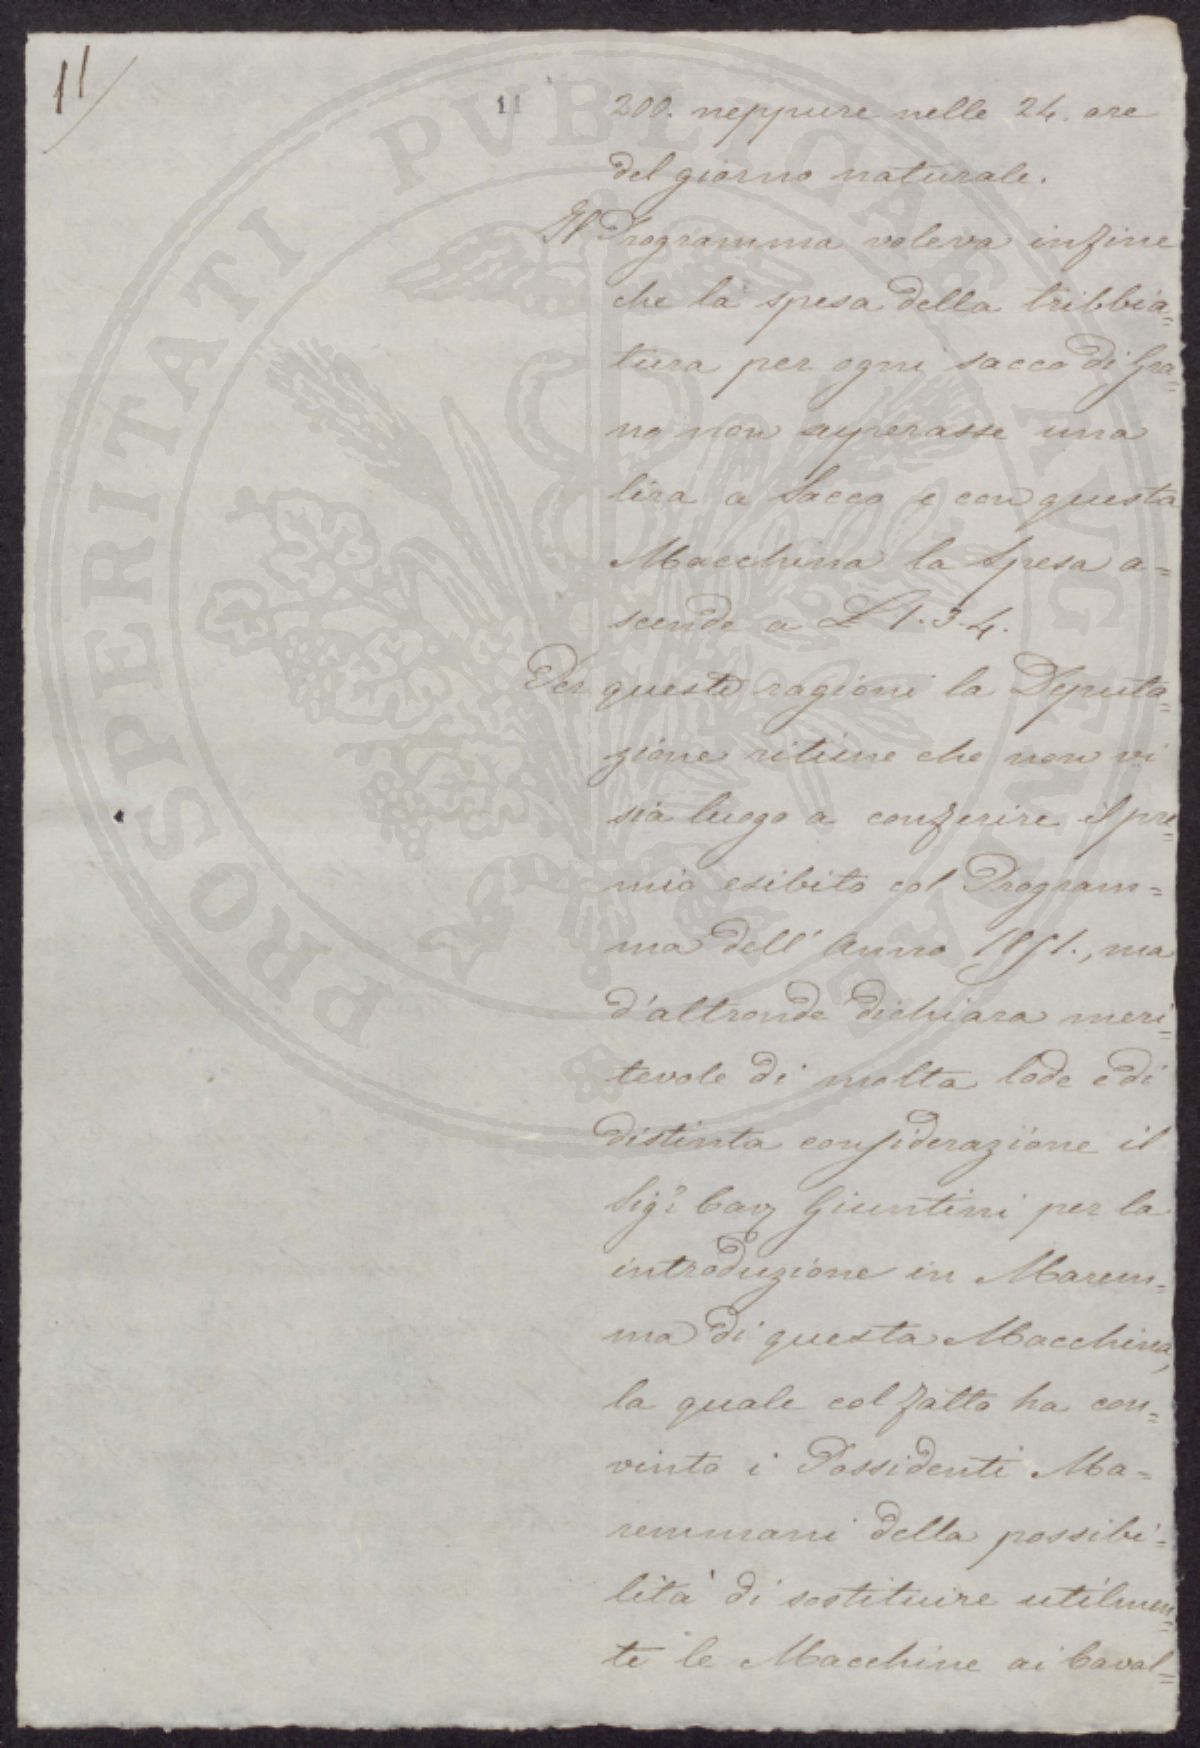 11
11
200. neppure nelle 24. ore
del giorno naturale.
Il Programma voleva infine
che la spesa della tribbia=
tura per ogni sacco di Gra=
no non superasse una
lira a Sacco e con questa
Macchina la Spesa a=
scende a £ 1.3.4.
Per queste ragioni la Deputa=
zione ritiene che non vi
sia luogo a conferire il pre=
mio esibito col Program=
ma dell' Anno 1851., ma
d'altronde dichiara meri=
tevole di molta lode e di
distinta considerazione il
Sig.r Cav Giuntini per la
introduzione in Marem=
ma di questa Macchina,
la quale col fatto ha con=
vinto i Possidenti Ma=
remmani della possibi=
lità di sostituire utilmen=
te le Macchine ai Caval=
PROSPERITATI PVBLICAE AVGENDAE